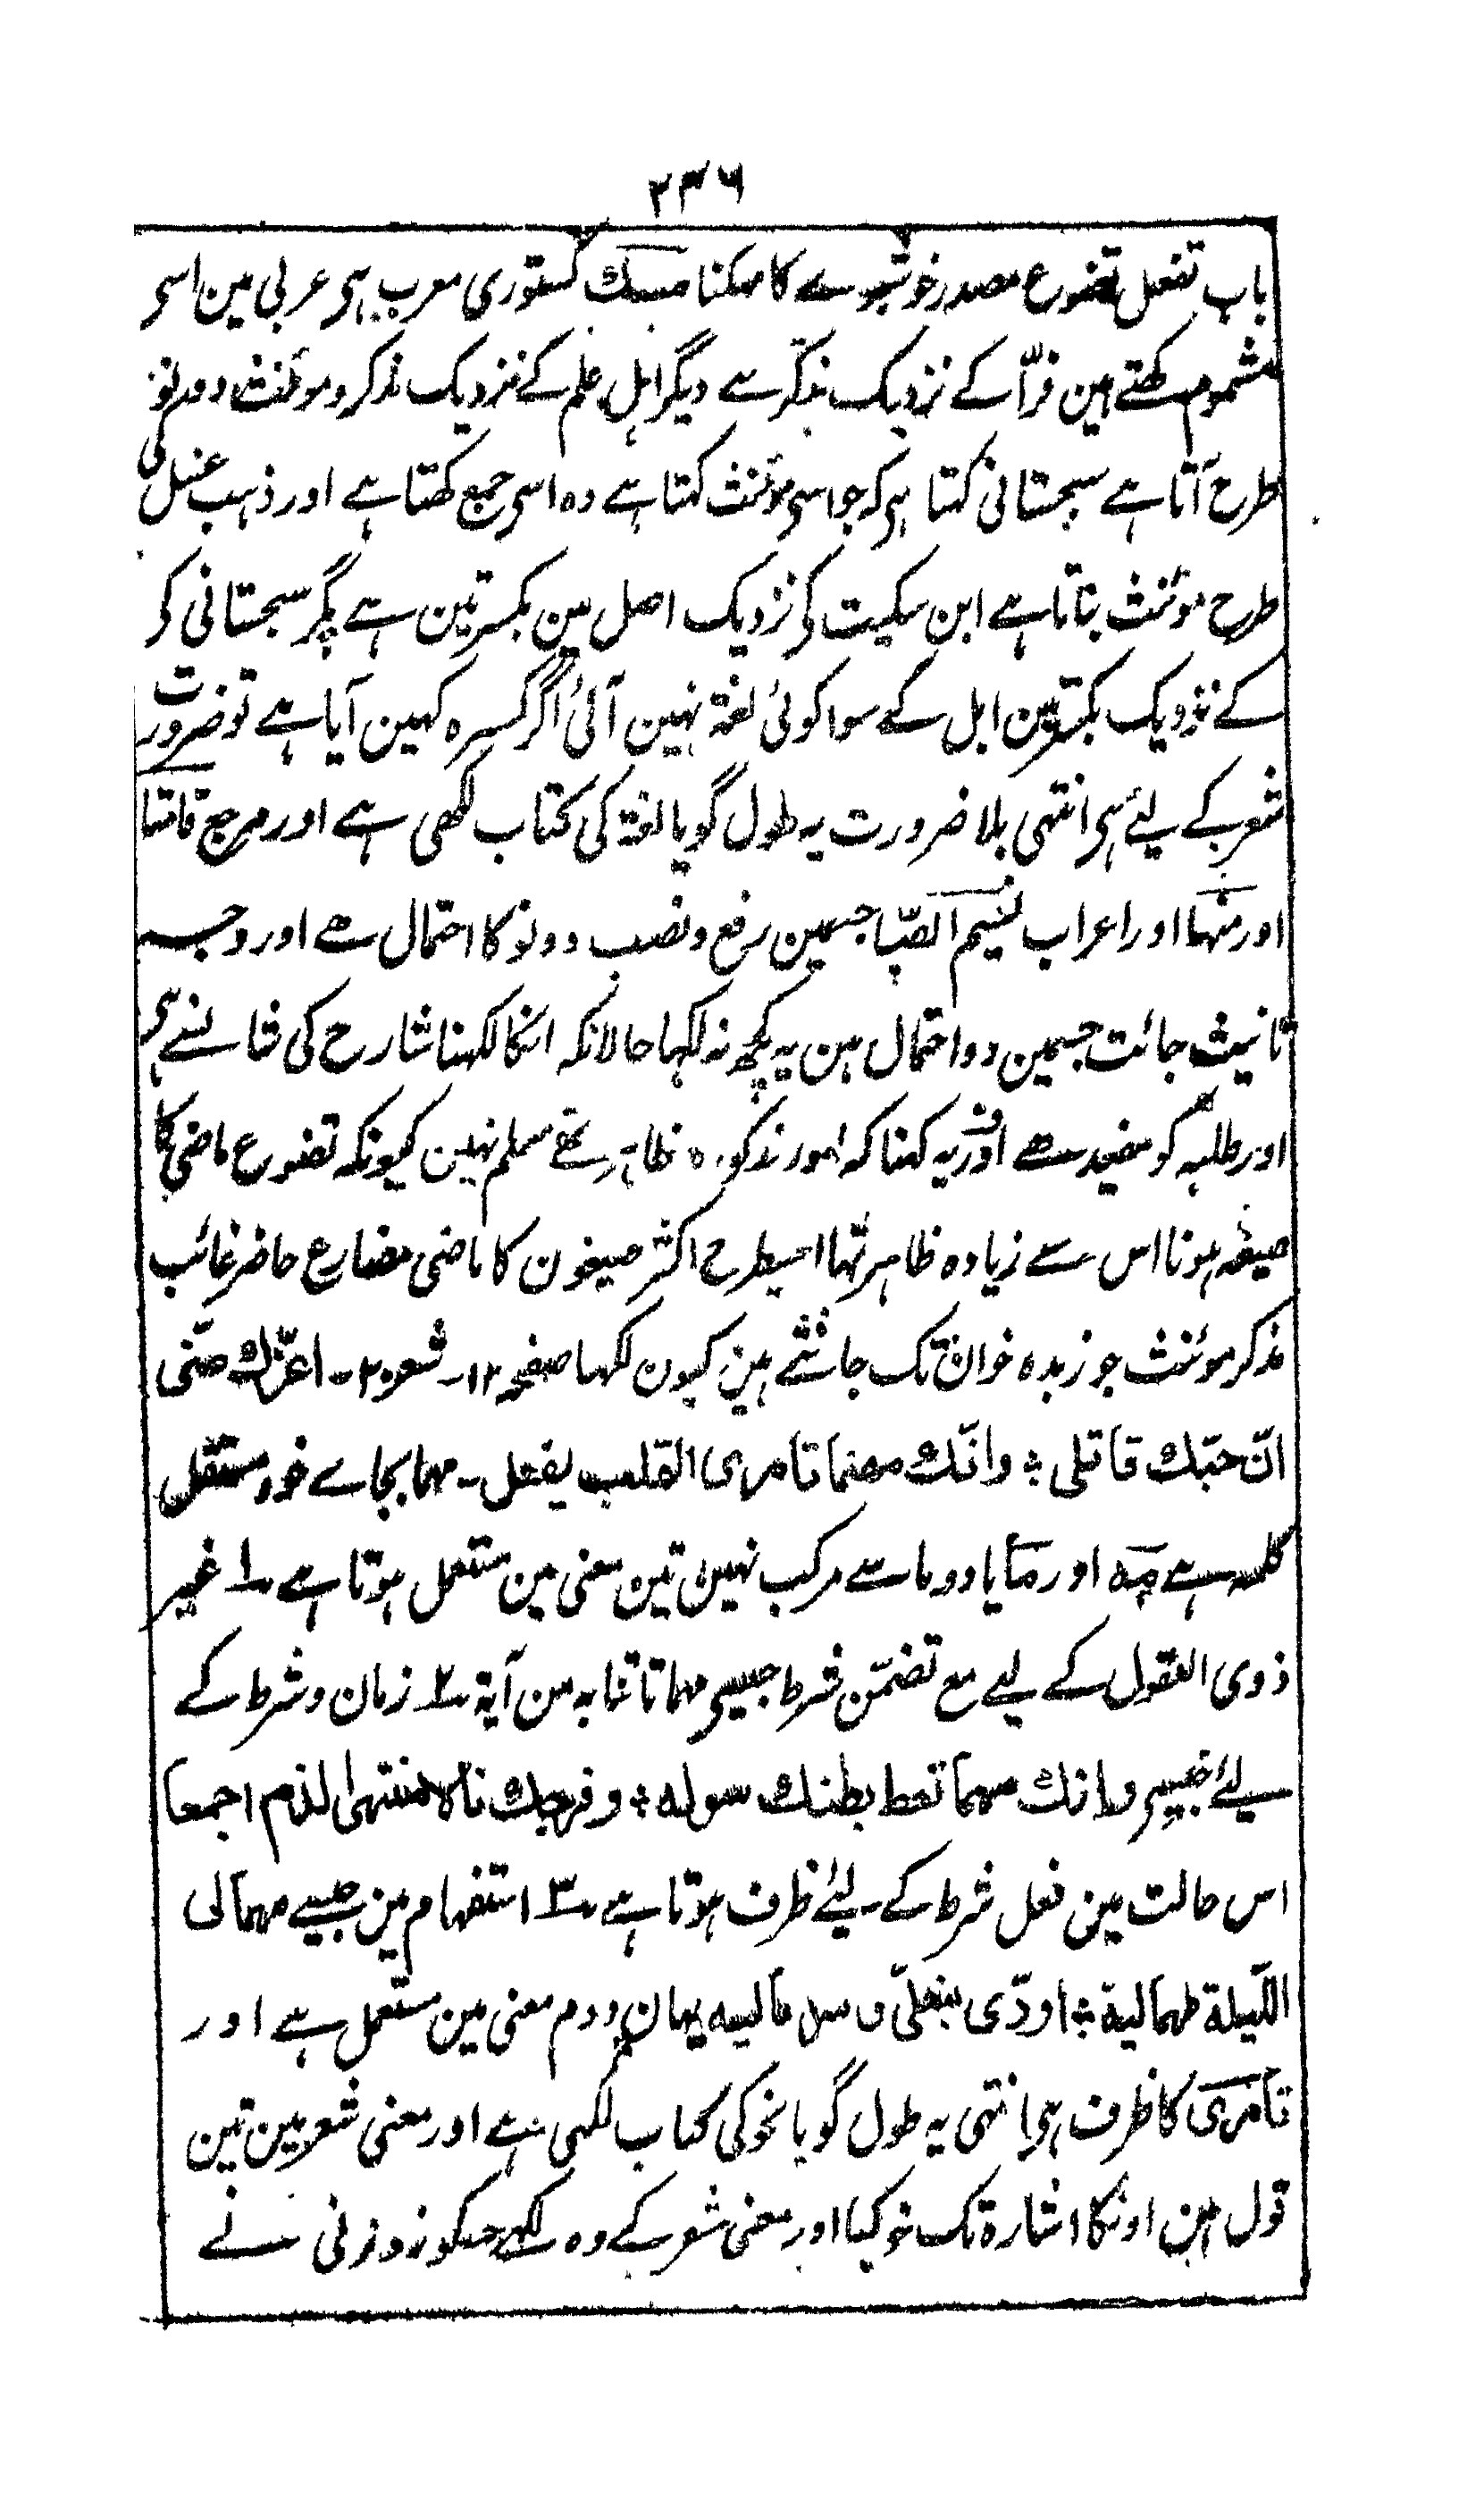 ۲۳۶
باب تفعل تضوع مصدر خوشبوسے کا مہکنا مسک کستوری معرب ہی عربی مین اسی
مشموم کہتے ہین فرّا کے نزدیک مذکر سے دیگر اہل علم کے نزدیک مذکر و موئنث دونو
طرح آتا ہے سجستانی کہتا ہی کہ جو اسی موئنث کہتا ہے وہ اسی جمع کہتا ہے اور ذہب عسل کی
طرح موئنث بتاتا ہے ابن سکیت کی نزدیک اصل مین بکسرتین ہے پگر سجستانی کی
کے نزدیک بکسرتین ابل کے سوا کوئی لغۃ نہین آئی اگر کسرہ کہین آیا ہے تو ضرورت
شعر کے لیئے ہی انتہی بلا ضرورت یہ طول گویا لغۃ کی کتاب لکھی ہے اور مرجع قامتا
اور منہما اور اعراب نسیم الصّبا جسمین رفع و نصب دونو کا احتمال ہے اور وجہ
تانیث جائت جسمین دو احتمال ہین یہ کچھ نہ لکہا حالانکہ انکا لکہنا شارح کی شان سے ہی
اور طلبہ کو مفید ہے اور یہ کہنا کہ امور مذکورہ ظاہر تھے مسلم نہین کیونکہ تضوع ماضی کا
صیغہ ہونا اس سے زیادہ ظاہر تہا اسیطرح اکثر صیغون کا ماضی مضارع حاضر غائب
مذکر موئنث جو زبدہ خوان تک جانتے ہین کیون لکہا صفحہ ۱۲۔ شعر ۲۰۔ اغرّک منّی
انّ حبّک قاتلی ؛ وانّک مھما تامری القلب یفعل۔ مہما بجاے خود مستقل
کلمہ ہے مَہ اور مَا یا دو ما سے مرکب نہین تین معنی مین مستعمل ہوتا ہے ۱ غیر
ذوی العقول کے لیے مع تضمّن شرط جیسی مہما تاتنا بہ من آیۃ ۲ زمان و شرط کے
لیئے جیسی وانک مہما تعط بطنک سولہ ؛ وفرجک نالا منتہی الذم اجمعا
اس حالت مین فعل شرط کے لیئے ظرف ہوتا ہے ۳ استفہام مین جیسے مہما لی
اللّیلۃ مھما لیۃ ؛ اودّی بنعلیّ و سربالیہ یہان دوم معنی مین مستعمل ہے اور
تامری کا ظرف ہی انتہی یہ طول گویا نحو کی کتاب لکہی ہے اور معنی شعر مین تین
قول ہین اونکا اشارۃ تک نہ کیا اور معنی شعر کے وہ لکہے جسکو زوزنی نے